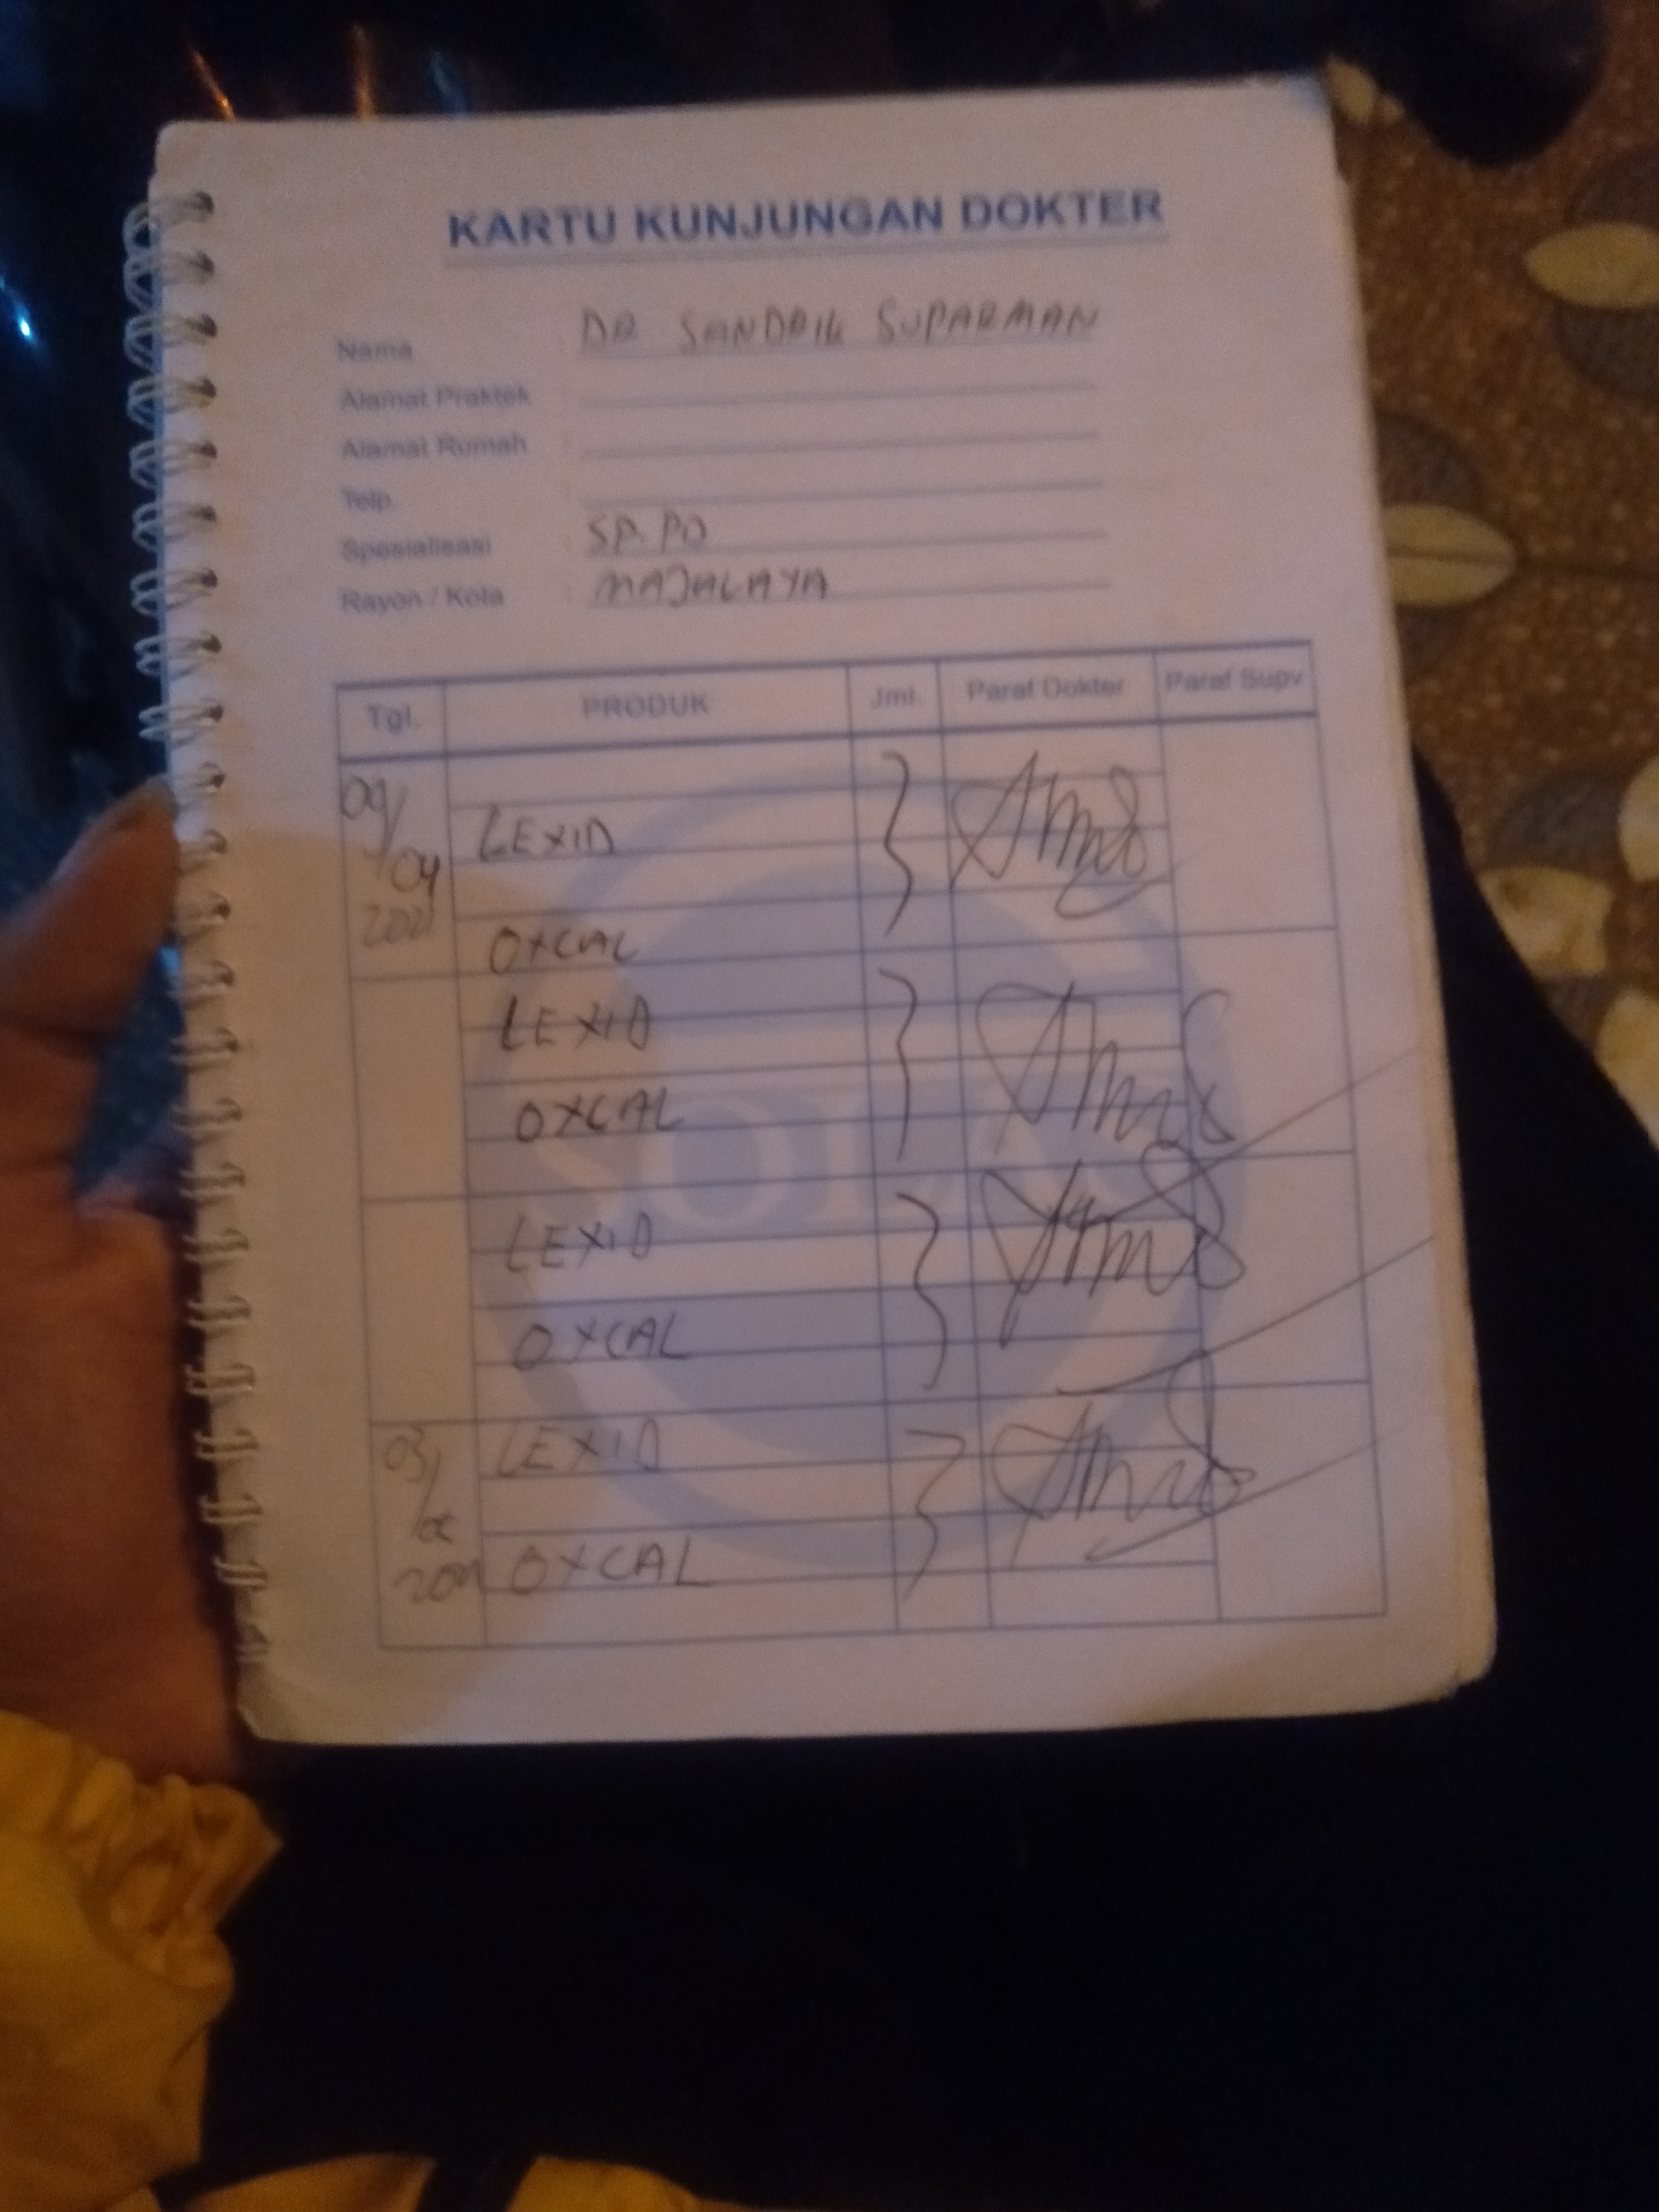 KARTU KUNJUNGAN DOKTER
Nama : DR SANDRIK SUPARMAN
Alamat Praktek :
Alamat Rumah :
Telp :
Spesialisasi : SP. PD
Rayon / Kota : MAJALAYA
Tgl. PRODUK Jml. Paraf Dokter Paraf Supv
09/04 LEXID
OXCAL
LEXID
OXCAL
LEXID
OXCAL
03/ LEXID
OXCAL